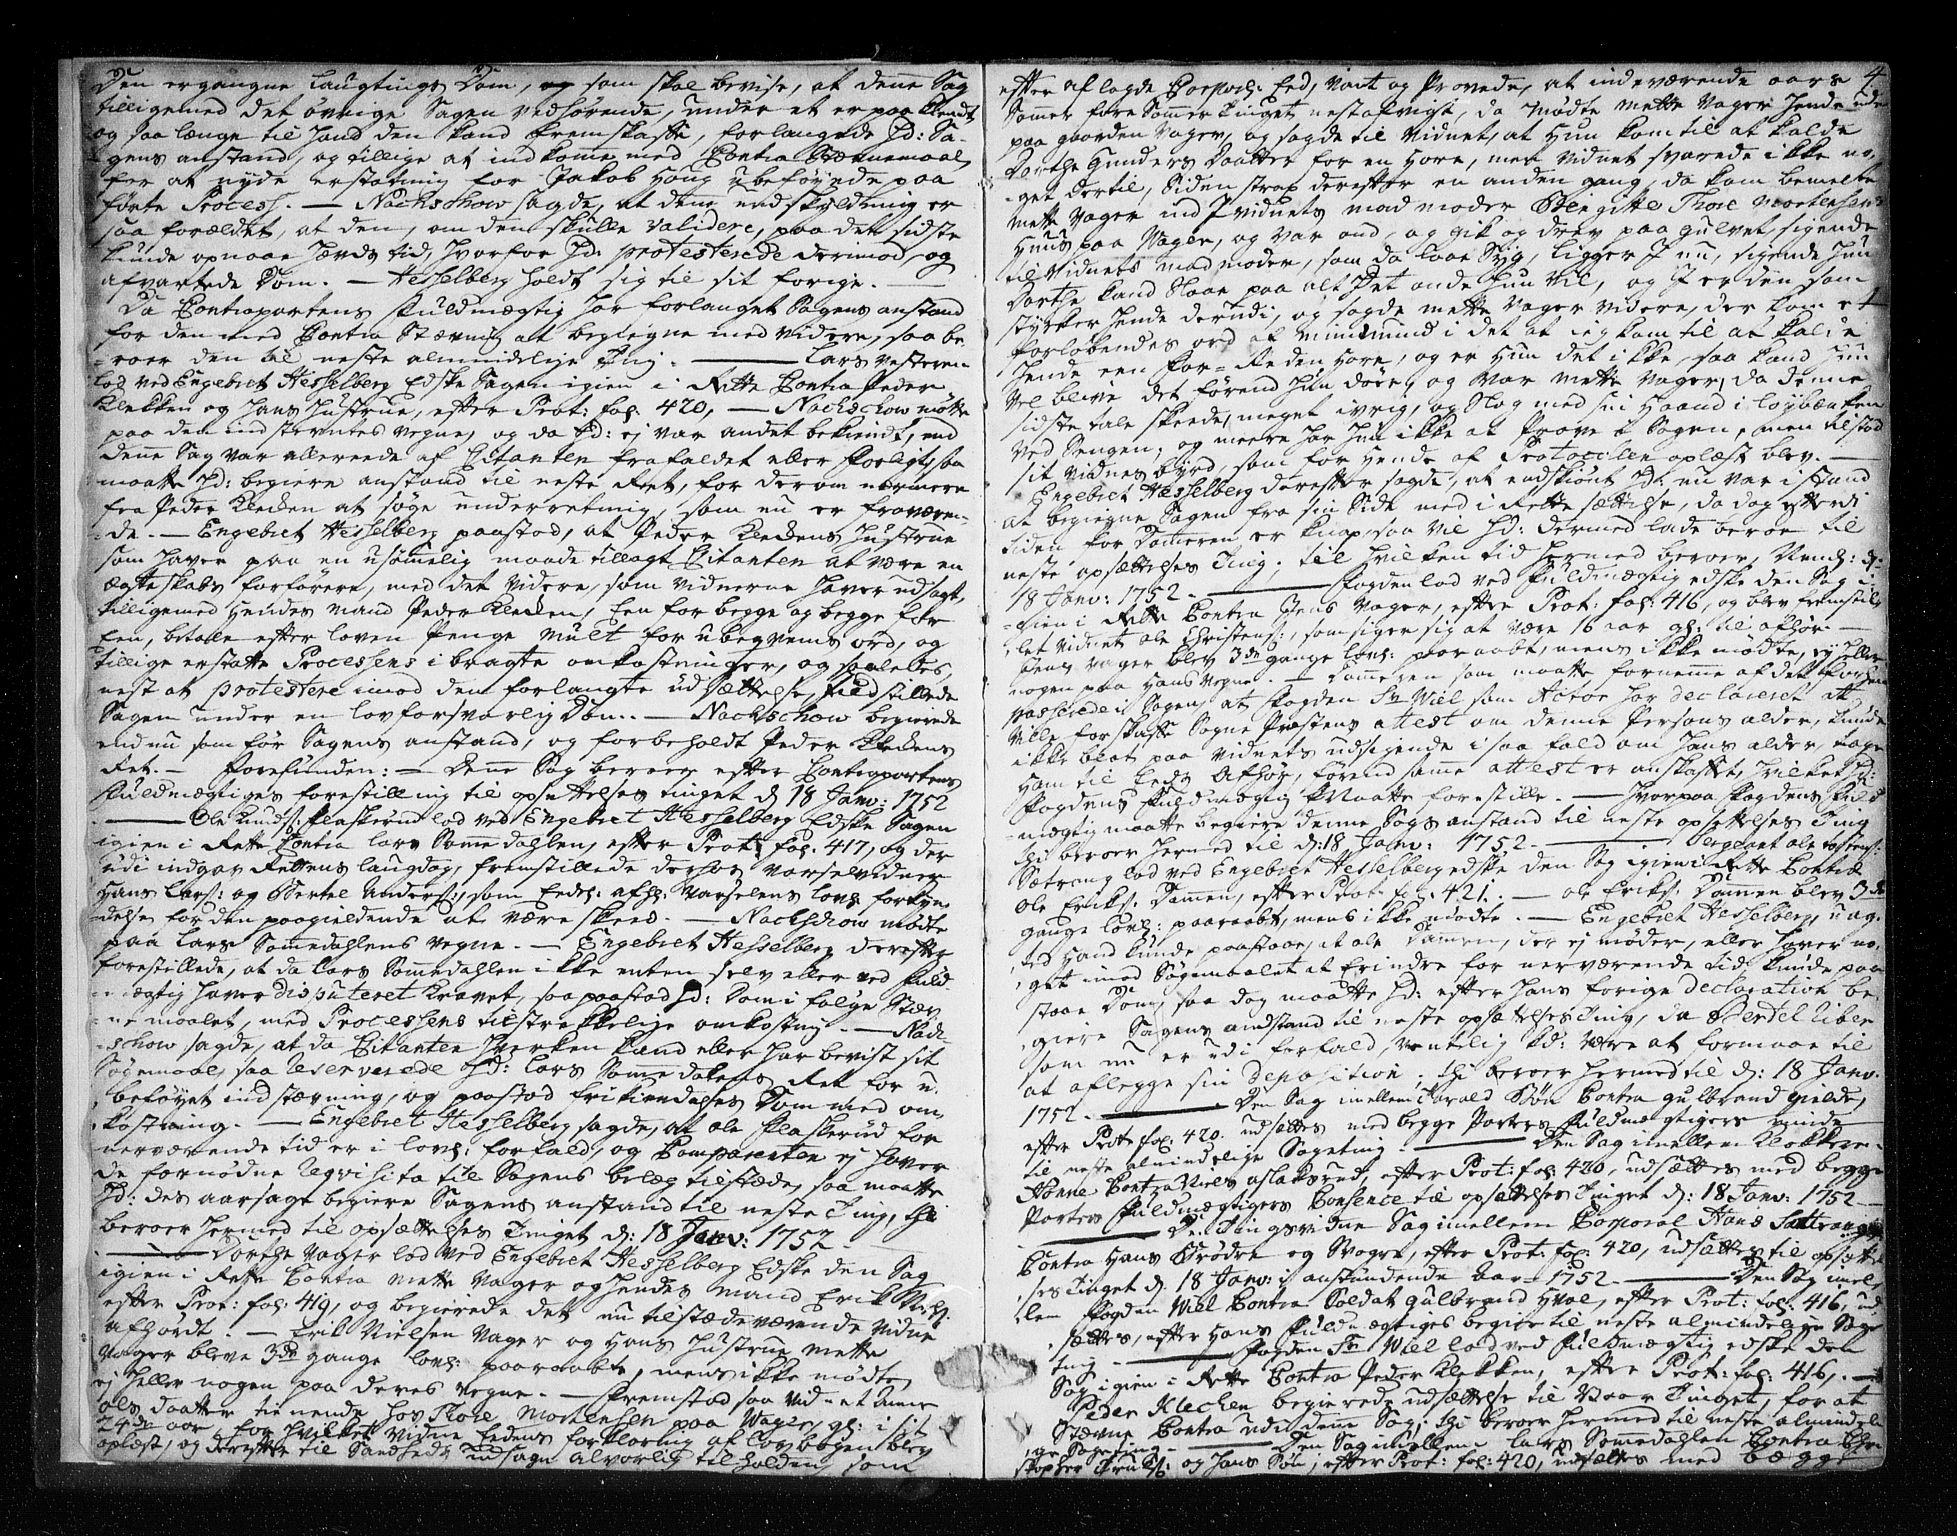 Den ergangne Laugtings Dom, og som skal bevise, at denne Sag
tilligemed det övrige Sagen vedhörende, under et er paa Klendt,
og saa længe til hand den kand fremskaffe, forlangede hd: Sa-
gens anstand, og tillige at indkomme med Contra Stævnemaal,
for at nyde erstatning for Jakob Houg ubeföynede paa
förte Process. — Nachschow sagde, at denne undskyldning er
saa forældet, at den, om den skulle validere, paa det sidste
kunde opnaae hævds tid, hvorfor hd: protesterede derimod, og
afvartede Dom. — Hesselberg holdt sig til sit forige. —
Da Contrapartens fuldmægtig har forlanget Sagens anstand
for den med Contra Stævning at begiegne med videre, saa be-
roer den til neste almindelige Ting. — Lars Vesteren
lod ved Engebret Hesselberg Edske Sagen igien i Rette Contra Peder
Klekken og hans hustrue, efter Prot: fol: 420, — Nachschow mötte
paa den indstevntes vegne, og da hd: ej var andet bekiendt, end
denne Sag var allereede af Citanten frafaldet eller forligt, saa
maatte hd: begiere anstand til neste Ret, for derom nærmere
fra Peder Klecken at söge underretning, som nu er fraværen-
de. — Engebret Hesselberg paastod, at Peder Kleckens hustrue
som haver paa en usömmelig maade tillagt Citanten at være en
ægteskabs forförere, med det videre, som vidnerne haver udsagt,
tilligemed hendes mand Peder Klecken, Een for begge og begge for
een, betale efter loven Penge mult for ubeqvems ord, og
tillige erstatte Processens ibragte omkostninger, og saaledes,
nest at protestere imod den forlangte udsættelse, indstillede
Sagen under en lovforsvarlig Dom. — Nachschow begierede
endnu som för Sagens anstand, og forbeholdt Peder Kleckens
Ret. — Forefunden: — Denne Sag beroer efter Contrapartens
fuldmægtiges forestilling til opsettelses tinget d: 18 Janv: 1752
— Ole Knuds: Flaskerud lod ved Engebret Hesselberg Edske Sagen
igien i Rette Contra Lars Sommedahlen, efter Prot: fol: 417, og der
udi indgav Rettens laugdag, fremstillede derhos varselvidner
Hans Lars: og Bertel Anders:, som Eedl: afhl: Varselens lovl: forkyn-
delse for den paagieldende at være skeed. — Nachschow mödte
paa Lars Sommedahlens vegne. — Engebret Hesselberg derefter
forestillede, at da Lars Sommedahlen ikke enten selv eller ved fuld-
mægtig haver disputeret kravet, saa paastod hd: Dom i fölge Stæv-
nemaalet, med Processens tilstrekkelige omkostning. — Nach-
schow sagde, at da Citanten hverken kand eller har bevist sit
Sögemaal, saa reserverede hd: Lars Sommedalens Ret for u-
beföyet indstævning, og paastod frikiendelses Dom med om-
kostning. — Engebret Hesselberg sagde, at Ole Flaskerud for
nerværende tid er i lovl: forfald, og Comparenten ej haver
de fornödne Reqvisita til Sagens belæg tilstæde, saa maatte
hd: des aarsage begiere Sagens anstand til neste Ting, thi
beroer hermed til opsættelses Tinget d: 18 Janv: 1752 —
— Dorthe Vager lod ved Engebret Hesselberg Edske den Sag
igien i Rette Contra Mette Vager og hendes mand Erik Niels:
efter Prot: fol: 419, og begierede det nu tilstædeværende vidne
afhördt. — Erik Nielsen Vager og Hans hustrue Mette
Vager bleve 3de gange lovl: paaraabt, mens ikke mödte,
ej heller nogen paa deres vegne. — Fremstod saa vid-et Anne
Ols daatter tienende hos Thore Mortensen paa Vager, gl: i sit
24de aar, for hvilket vidne Eedens forklaring af lovbogen blev
oplæst, og derefter til Sandheds udsagn alvorlig tilholden, som
efter aflagde Corporl: Eed, vant og Provede, at indeværende aars
Sommer före Sommertinget nestafvigt, da mödte Mette Vager hende ude
paa gaarden Vager, og sagde til vidnet, at hun kom til at kalde
Dorthe Gunders daatter for en Hore, men vidnet svarede ikke no-
get dertil, Siden strax derefter en anden gang, da kom bemelte
Mette Vager ind i vidnets madmoder Birgitte Thore Mortensens
Huus paa Vager, og var ond, og gik og drev paa gulvet, sigende
til vidnets madmoder, som da laae Syg, ligger I nu, sigende hun
Dorthe kand slaae paa alt det onde hun vil, og I er den som
styrker hende derudi, og sagde Mette Vager videre, der kom et
forlöbendes ord af min mund i det at jeg kom til at kalde
hende een For-Reden Hore, og er hun det ikke, saa kand hun
vel blive det förend hun döer, og var Mette Vager, da denne
sidste tale skeede, meget ivrig, og slog med sin Haand i Löybænken
ved Sengen; og meere har hun ikke at Prove i Sagen, men tilstod
sit vidnesbyrd, som for hende af Protocollen oplæst blev. —
Engebret Hesselberg derefter sagde, at endskiönt hd: nu var i stand
at begiegne Sagen fra sin Side med i Rettesættelse, da dog efterdi
tiden for Dommeren er knap saa vil hd: dermed lade beroe til
neste opsættelses Ting; til hvilken tid hermed beroer, nemlig: d:
18 Janv: 1752. — Fogden lod ved fuldmægtig edske den Sag i-
gien i Rette Contra Jens Vager, efter Prot: fol: 416, og blev fremstil-
let vidnet Ole Christens:, som siger sig at være 16 aar gl: til afhör. —
Jens Vager blev 3de gange lovl: paaraabt, mens ikke mödte, ej heller
nogen paa Hans Vegne. — Dommeren som maatte fornemme af det forhen
passerede i Sagen, at Fogden Sr Wiel som Actor har declareret at
ville forskaffe Sogne Præstens attest om denne Persons alder, kunde
ikke blot paa vidnets udsigende i saa fald om hans alder, tage
ham til Eeds Afhör, förend samme attest er anskaffet, hvilket hd:
Fogdens fuldmægtig Maatte forestille. — Hvorpaa Fogdens fuld-
mægtig maatte begiere denne Sags anstand til neste opsettelses Ting
thi beroer hermed til d: 18 Janv: 1752. — Sergeant Ole Tostens:
Sætrang lod ved Engebret Hesselberg edske den Sag igien i Rette Contra
Ole Eriks: Dammen, efter Prot: fol: 421. — Ole Eriks: Dammen blev 3de
gange lovl: paaraabt, mens ikke mödte. — Engebret Hesselberg, uag-
ted hand kunde paastaae, at Ole Dammen, der ej möder, eller haver no-
get imod Sögemaalet at Erindre for nerværende tid kunde paa-
staae Dom, saa dog maatte hd: efter hans forige declaration be-
giere Sagens andstand til neste opsættelses Ting, da Berdel Viker
som nu er udi forfald, ventelig kd: være at formaae til
at aflegge sin deposition; thi beroer hermed til d: 18 Janv.
1752. — Den Sag imellem Harald Bön Contra Gulbrand Gielde,
efter Prot: fol: 420. udsættes med begge Parters fuldmægtigers minde
til neste almindelige Sageting. — Den Sag imellem Klokkere
Hanne Contra Niels Aslaksrud, efter Prot: fol: 420, udsættes med begge
Parters fuldmægtigers Consence til opsættelses Tinget d: 18 Janv: 1752
— De Tingsvidne Sag imellem Corporal Hans Sættrang
Contra Hans Brödre og Svogre, efter Prot: fol: 420, udsættes til opsettel-
ses Tinget d. 18 Janv: i anstundende Aar 1752 — Den Sag imel-
lem Fogden Wiel Contra Soldat Gulbrand Hval, efter Prot: fol: 416, ud-
sættes, efter Hans fuldmægtiges begier til neste almindelige Sage
ting — Fogden Sr Wiel lod ved fuldmægtig edske den
Sag igien i Rette Contra Peder Klekken, efter Prot: fol: 416, —
Peder Klechen begierede udsættelse til Vaar Tinget, for at
Stævne Contra udi denne Sag; thi beroer hermed til neste almindeli-
ge Sageting. — Den Sag imellem Lars Sommedahlen Contra Chri-
stopher Truls: og hans Sön, efter Prot: fol: 420, udsættes med begge